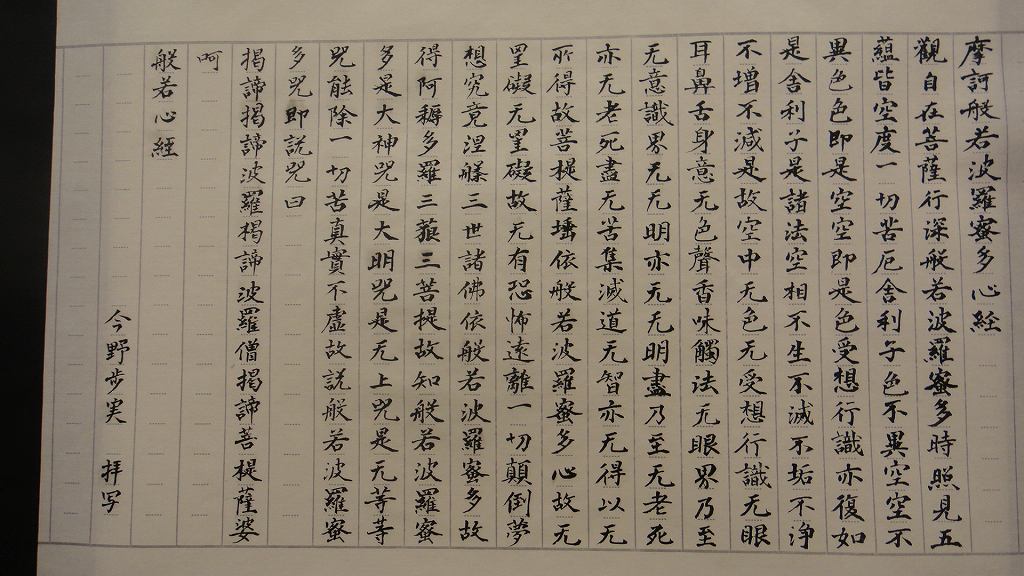 摩訶般若波羅蜜多心経
觀自在菩薩行深般若波羅蜜多時照見五
蘊皆空度一切苦厄舎利子色不異空空不
異色色即是空空即是色受想行識亦復如
是舎利子是諸法空相不生不滅不垢不浄
不増不減是故空中无色无受想行識无眼
耳鼻舌身意无色聲香味觸法无眼界乃至
无意識界无无明亦无无明盡乃至无老死
亦无老死盡无苦集滅道无智亦无得以无
所得故菩提薩埵依般若波羅蜜多心故无
罣礙无罣礙故无有恐怖遠離一切顛倒夢
想究竟涅槃三世諸佛依般若波羅蜜多故
得阿耨多羅三藐三菩提故知般若波羅蜜
多是大神咒是大明咒是无上咒是无等等
咒能除一切苦真實不虚故説般若波羅蜜
多咒即説咒曰
揭諦揭諦波羅揭諦波羅僧揭諦菩提薩婆
呵
般若心経
今野歩実 拝写